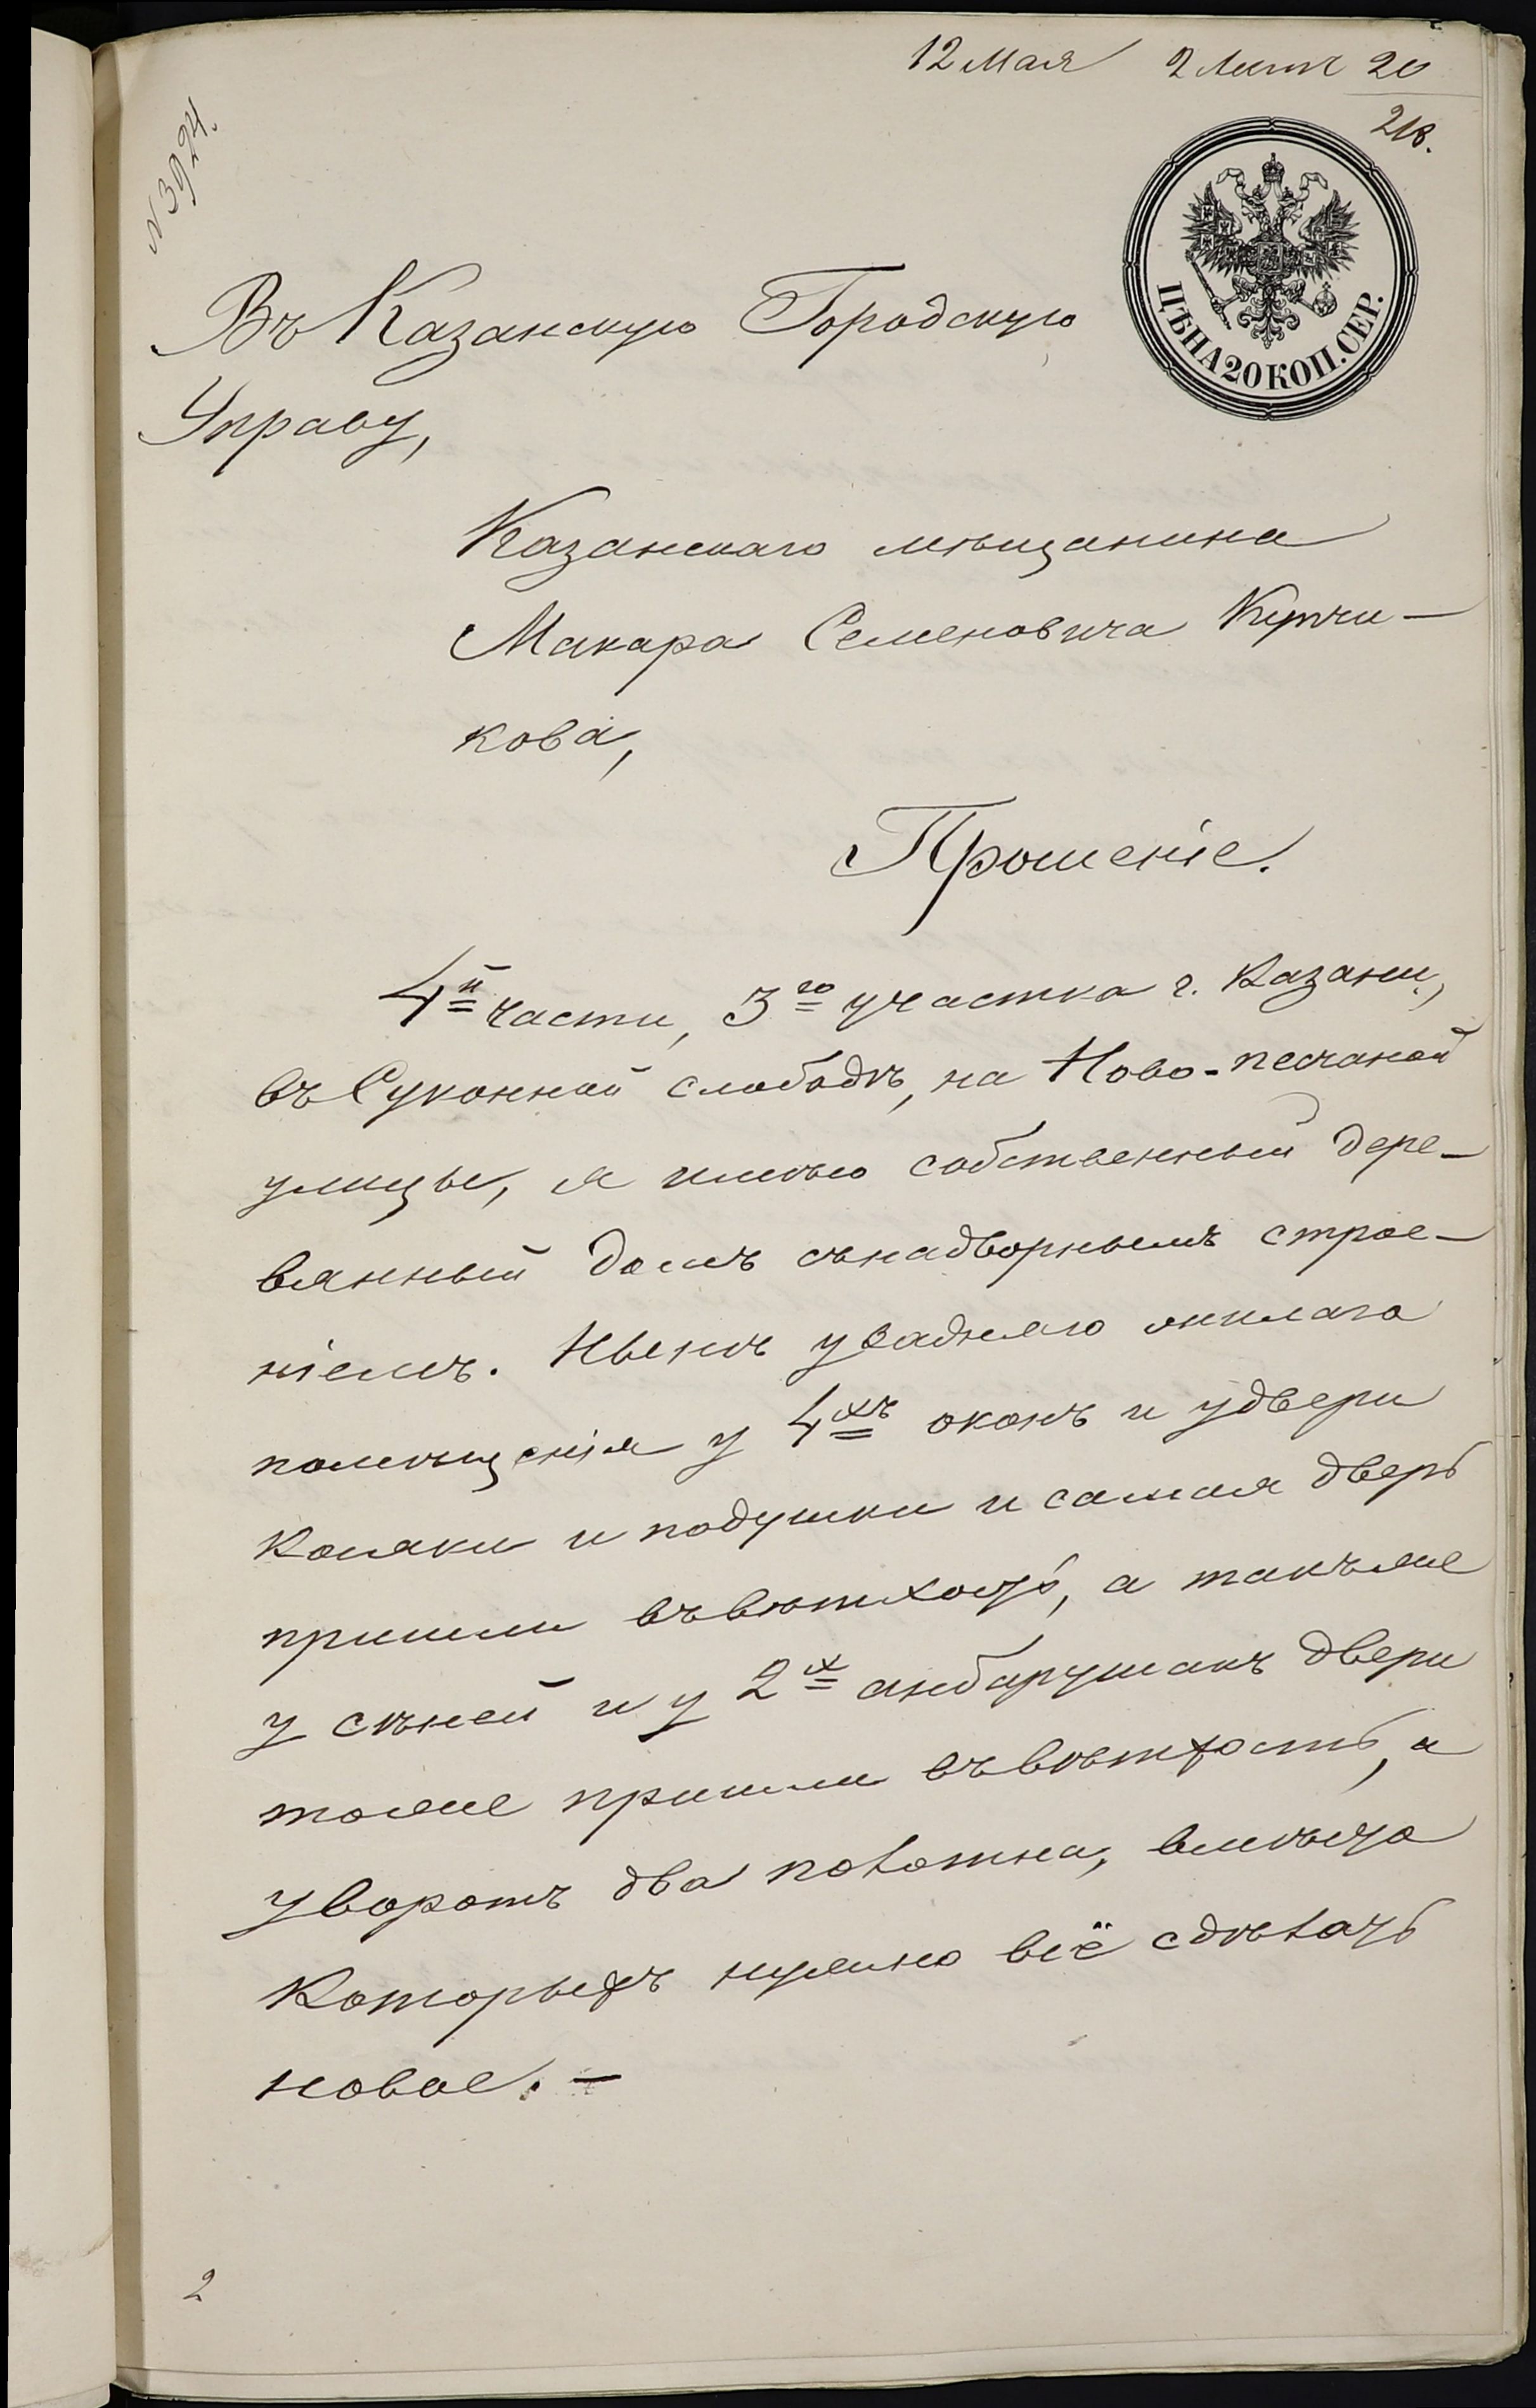 12 Мая 2 Лист 20
218.
N 3924.
ЦѢНА 20 КОП. СЕР.
Въ Казанскую Городскую
Управу,
Казанскаго мѣщанина
Макара Семеновича Купчи-
кова,
Прошеніе.
4й части, 3го участка г. Казани,
въ Суконной слободѣ, на Ново-песчаной
улицы, я имѣю собственный дере-
вянный домъ сънадворнымъ строе-
ніемъ. Нынѣ узадняго жилаго
помѣщенія у 4хъ оконъ и удвери
косяки и подушки и самая дверь
пришли въвѣтхость, а такъже
у сѣней и у 2х анбарушакъ двери
тоже пришли въвѣтхость, и
уворотъ два полотна, вмѣсто
которыхъ нужно всё сдѣлать
новое. —
2